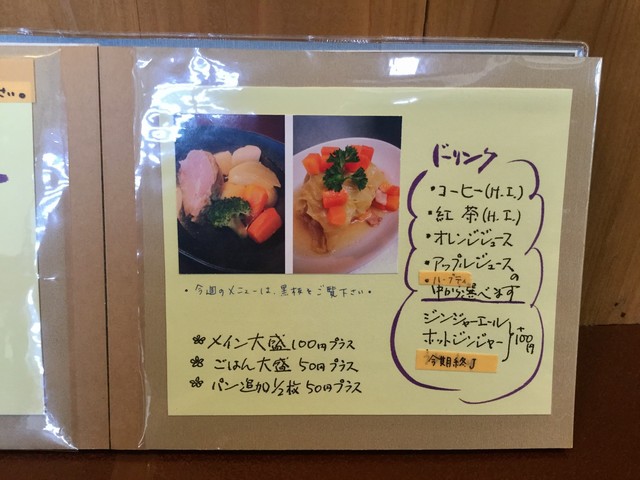 さい。
・今週のメニューは、黒板をご覧下さい・
❀メイン大盛100円プラス
❀ごはん大盛 50円プラス
❀パン追加1/2枚 50円プラス
ドリンク
・コーヒー(H.I.)
・紅 茶(H.I.)
・オレンジジュース
・アップルジュース
・ハーブティ
の中から選べます
ジンジャーエール
ホットジンジャー
+100円
今期終了